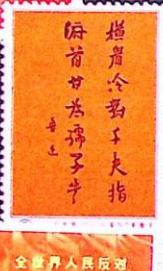 横眉冷對千夫指
俯首甘为孺子牛
鲁迅
全世界人民反对